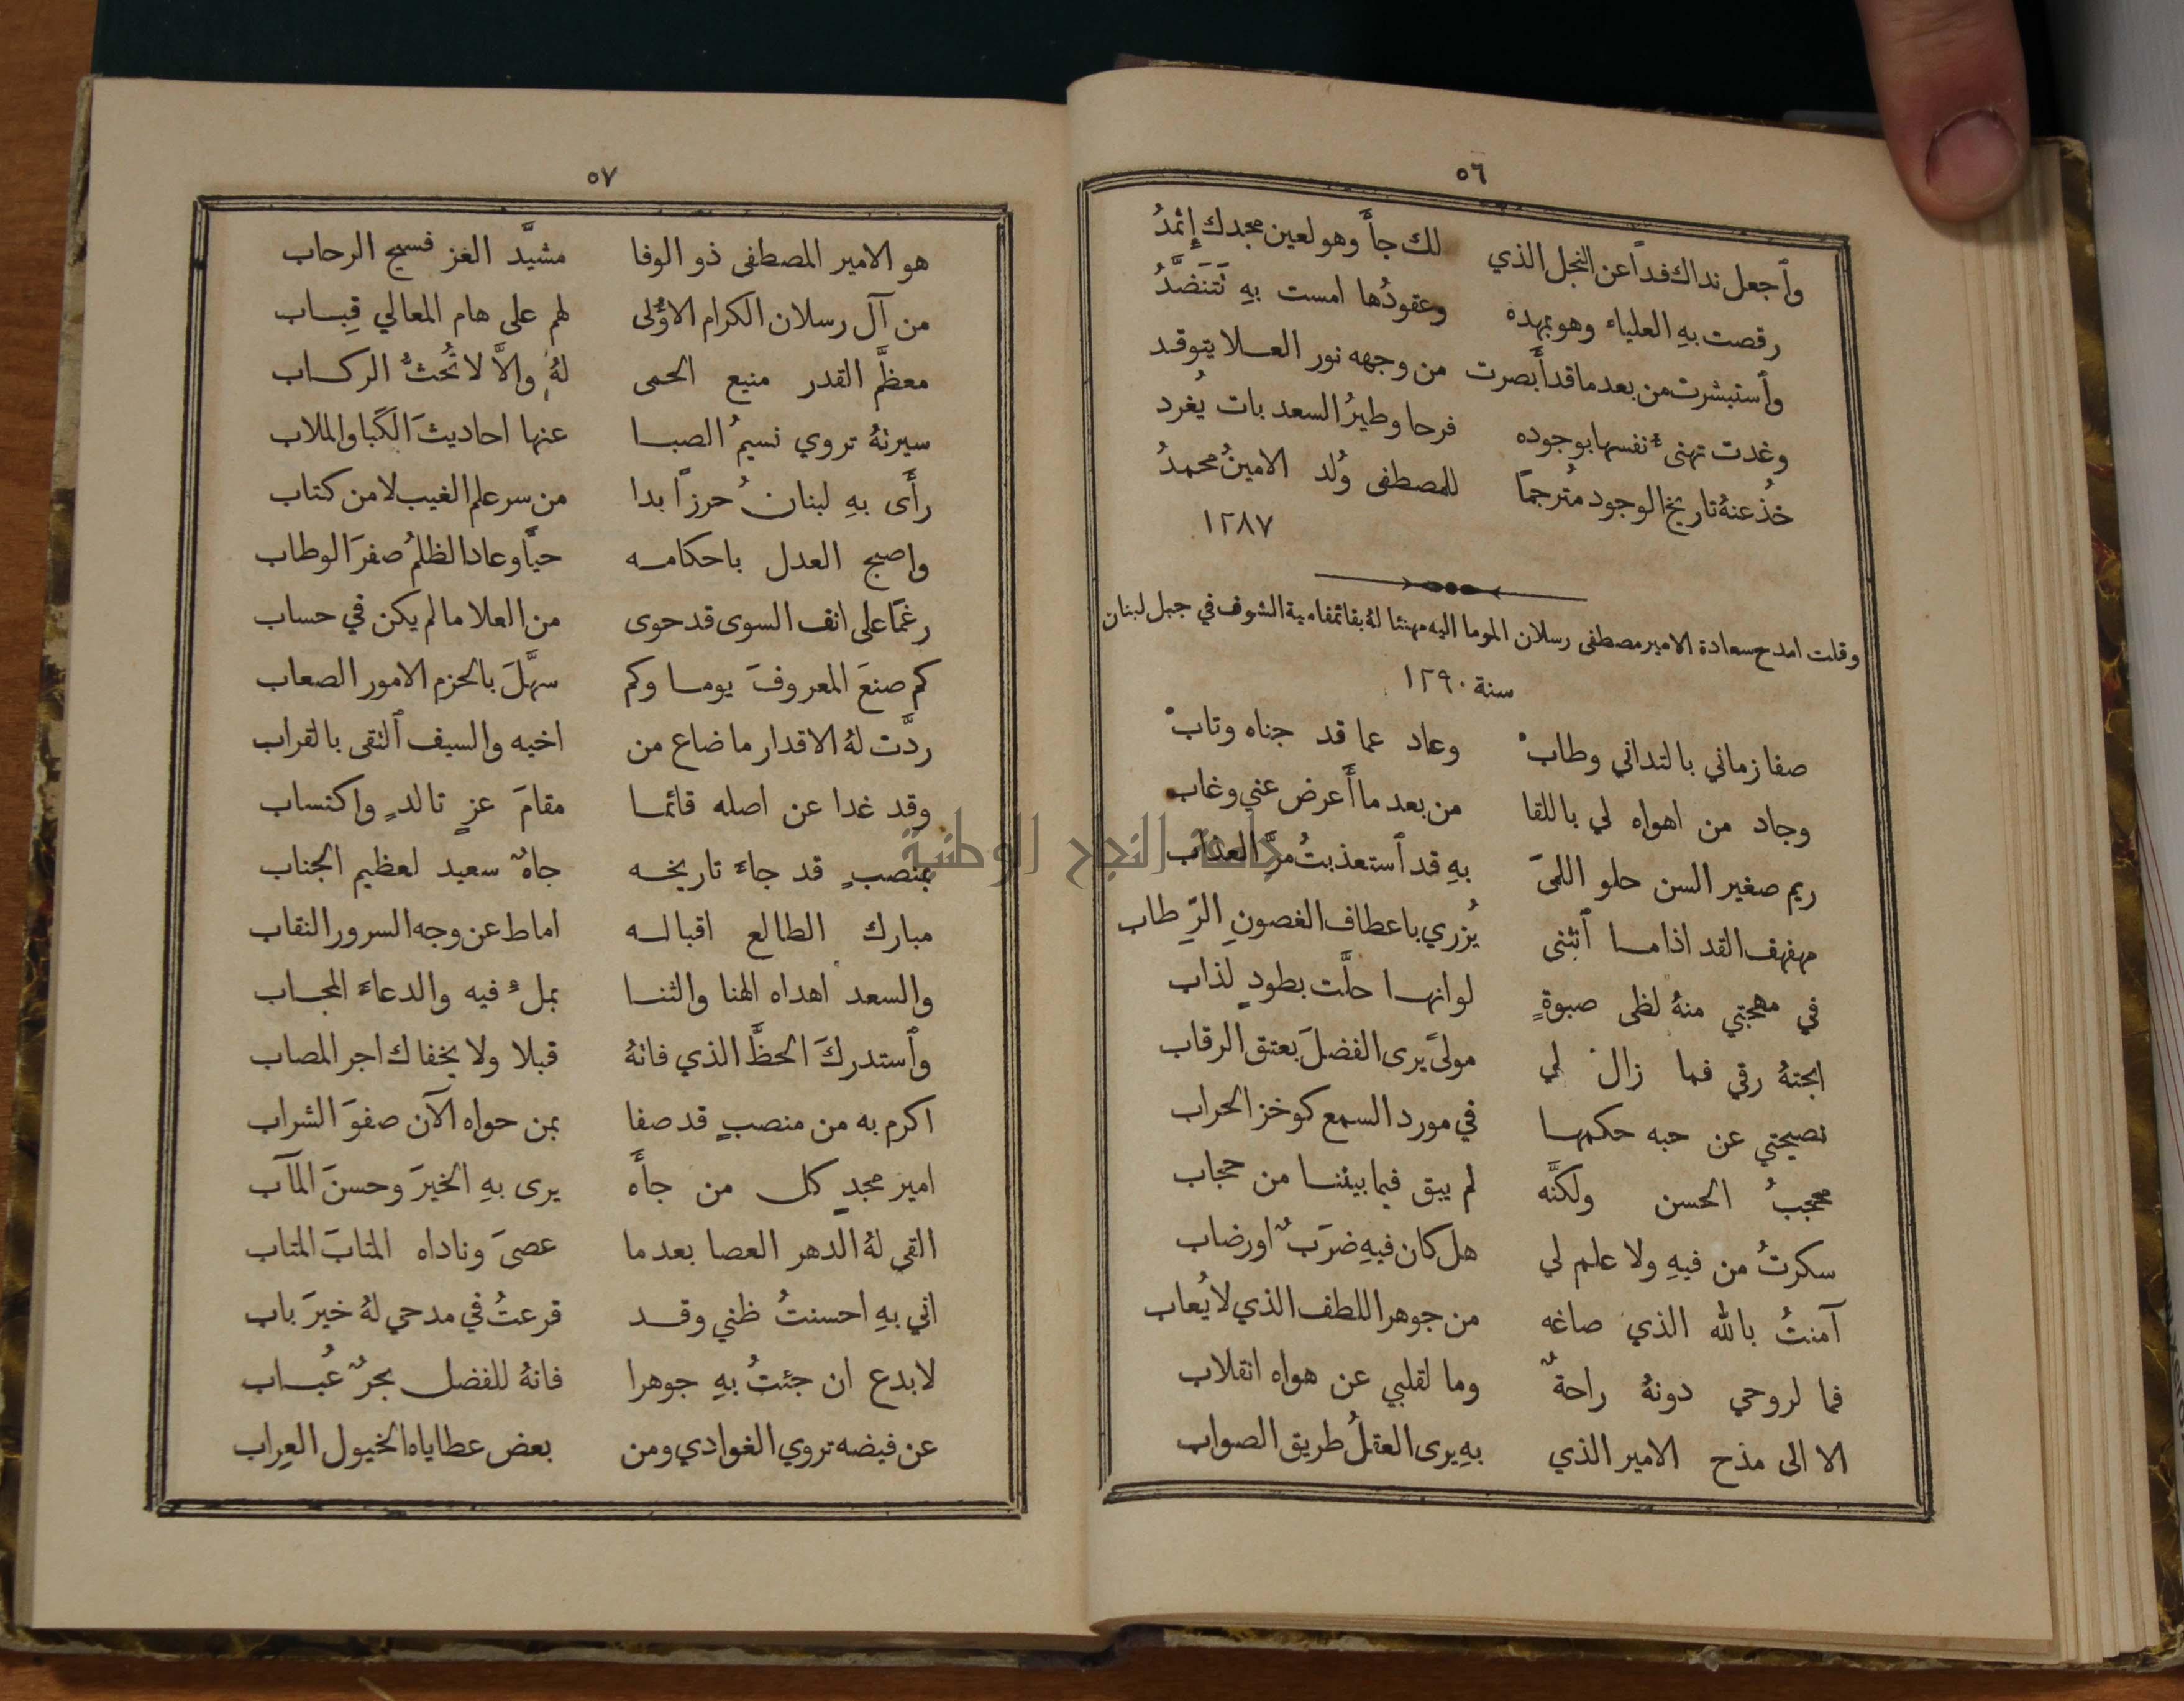 ٥٦
وٱجعل نداك فداً عن النجل الذي لك جأَ وهو لعين مجدك إِثمدُ
رقصت بهِ العلياء وهو بمهده وعقودُها امست بهِ تَتَنَضَّدُ
وٱستبشرت من بعد ما قد أَبصرت من وجهه نور العلا يتوقد
وغدت تهنىء نفسها بوجوده فرحا وطيرُ السعد بات يُغرد
خذ عنهُ تاريخ الوجود مُترجماً للمصطفى وُلد الامينُ محمدُ
١٢٨٧
وقلت امدح سعادة الامير مصطفى رسلان الموما اليه مهنئا لهُ بقائمقامية الشوف في جبل لبنان
سنة ١٢٩٠
صفا زماني بالتداني وطابْ وعاد عما قد جناه وتابْ
وجاد من اهواه لي باللقا من بعد ما أَعرض عني وغاب
ريم صغير السن حلو اللمىَ بهِ قد ٱستعذبتُ مرَّ العذاب
مهفهف القد اذا ما ٱنثنى يُزري باعطاف الغصونِ الرِّطاب
في مهجتي منهُ لظى صبوةٍ لو انها حلَّت بطودٍ لذاب
ابحتهُ رقي فما زال لي مولىً يرى الفضلَ بعتق الرقاب
نصيحتي عن حبه حكمها في مورد السمع كوخز الحراب
محجبُ الحسن ولكنَّه لم يبق فيما بيننا من حجاب
سكرتُ من فيهِ ولا علم لي هل كان فيهِ ضرَبٌ او رضاب
آمنتُ بالله الذي صاغه من جوهر اللطف الذي لا يُعاب
فما لروحي دونهُ راحةٌ وما لقلبي عن هواه انقلاب
الا الى مدح الامير الذي بهِ يرى العقلُ طريق الصواب
٥٧
هو الامير المصطفى ذو الوفا مشيَّد العز فسيح الرحاب
من آل رسلان الكرام الاوُلى لهم على هام المعالي قِباب
معظَّم القدر منيع الحمى لهُ والاَّ لا تُحثُّ الركاب
سيرتهُ تروي نسيمُ الصبا عنها احاديثَ الكَبا والملاب
رأَى بهِ لبنانُ حرزاً بدا من سر علم الغيب لا من كتاب
واصبح العدل باحكامه حيًّا وعاد الظلمُ صفرَ الوطاب
رغمًا على انف السوى قد حوى من العلا ما لم يكن في حساب
كم صنعَ المعروفَ يوما وكم سهَّلَ بالحزم الامور الصعاب
ردَّت لهُ الاقدار ما ضاع من اخيه والسيف ٱلتقى بالقراب
وقد غدا عن اصله قائما مقامَ عزٍ تالدٍ واكتساب
بمنصبٍ قد جاءَ تاريخه جاهٌ سعيد لعظيم الجناب
مبارك الطالع اقباله اماط عن وجه السرور النقاب
والسعد اهداه الهنا والثنا بملءِ فيه والدعاءَ المجاب
وٱستدركَ الحظَّ الذي فاتهُ قبلا ولا يخفاك اجر المصاب
اكرم به من منصبٍ قد صفا بمن حواه الآن صفوَ الشراب
امير مجدٍ كل من جأَه يرى بهِ الخيرَ وحسنَ المآب
القى لهُ الدهر العصا بعد ما عصىَ وناداه المتابَ المتاب
اني بهِ احسنتُ ظني وقد قرعتُ في مدحي لهُ خيرَ باب
لا بدع ان جئتُ بهِ جوهرا فانهُ للفضل بحرٌ عُباب
عن فيضه تروي الغوادي ومن بعض عطاياه الخيول العِراب
جامعة النجاح الوطنية